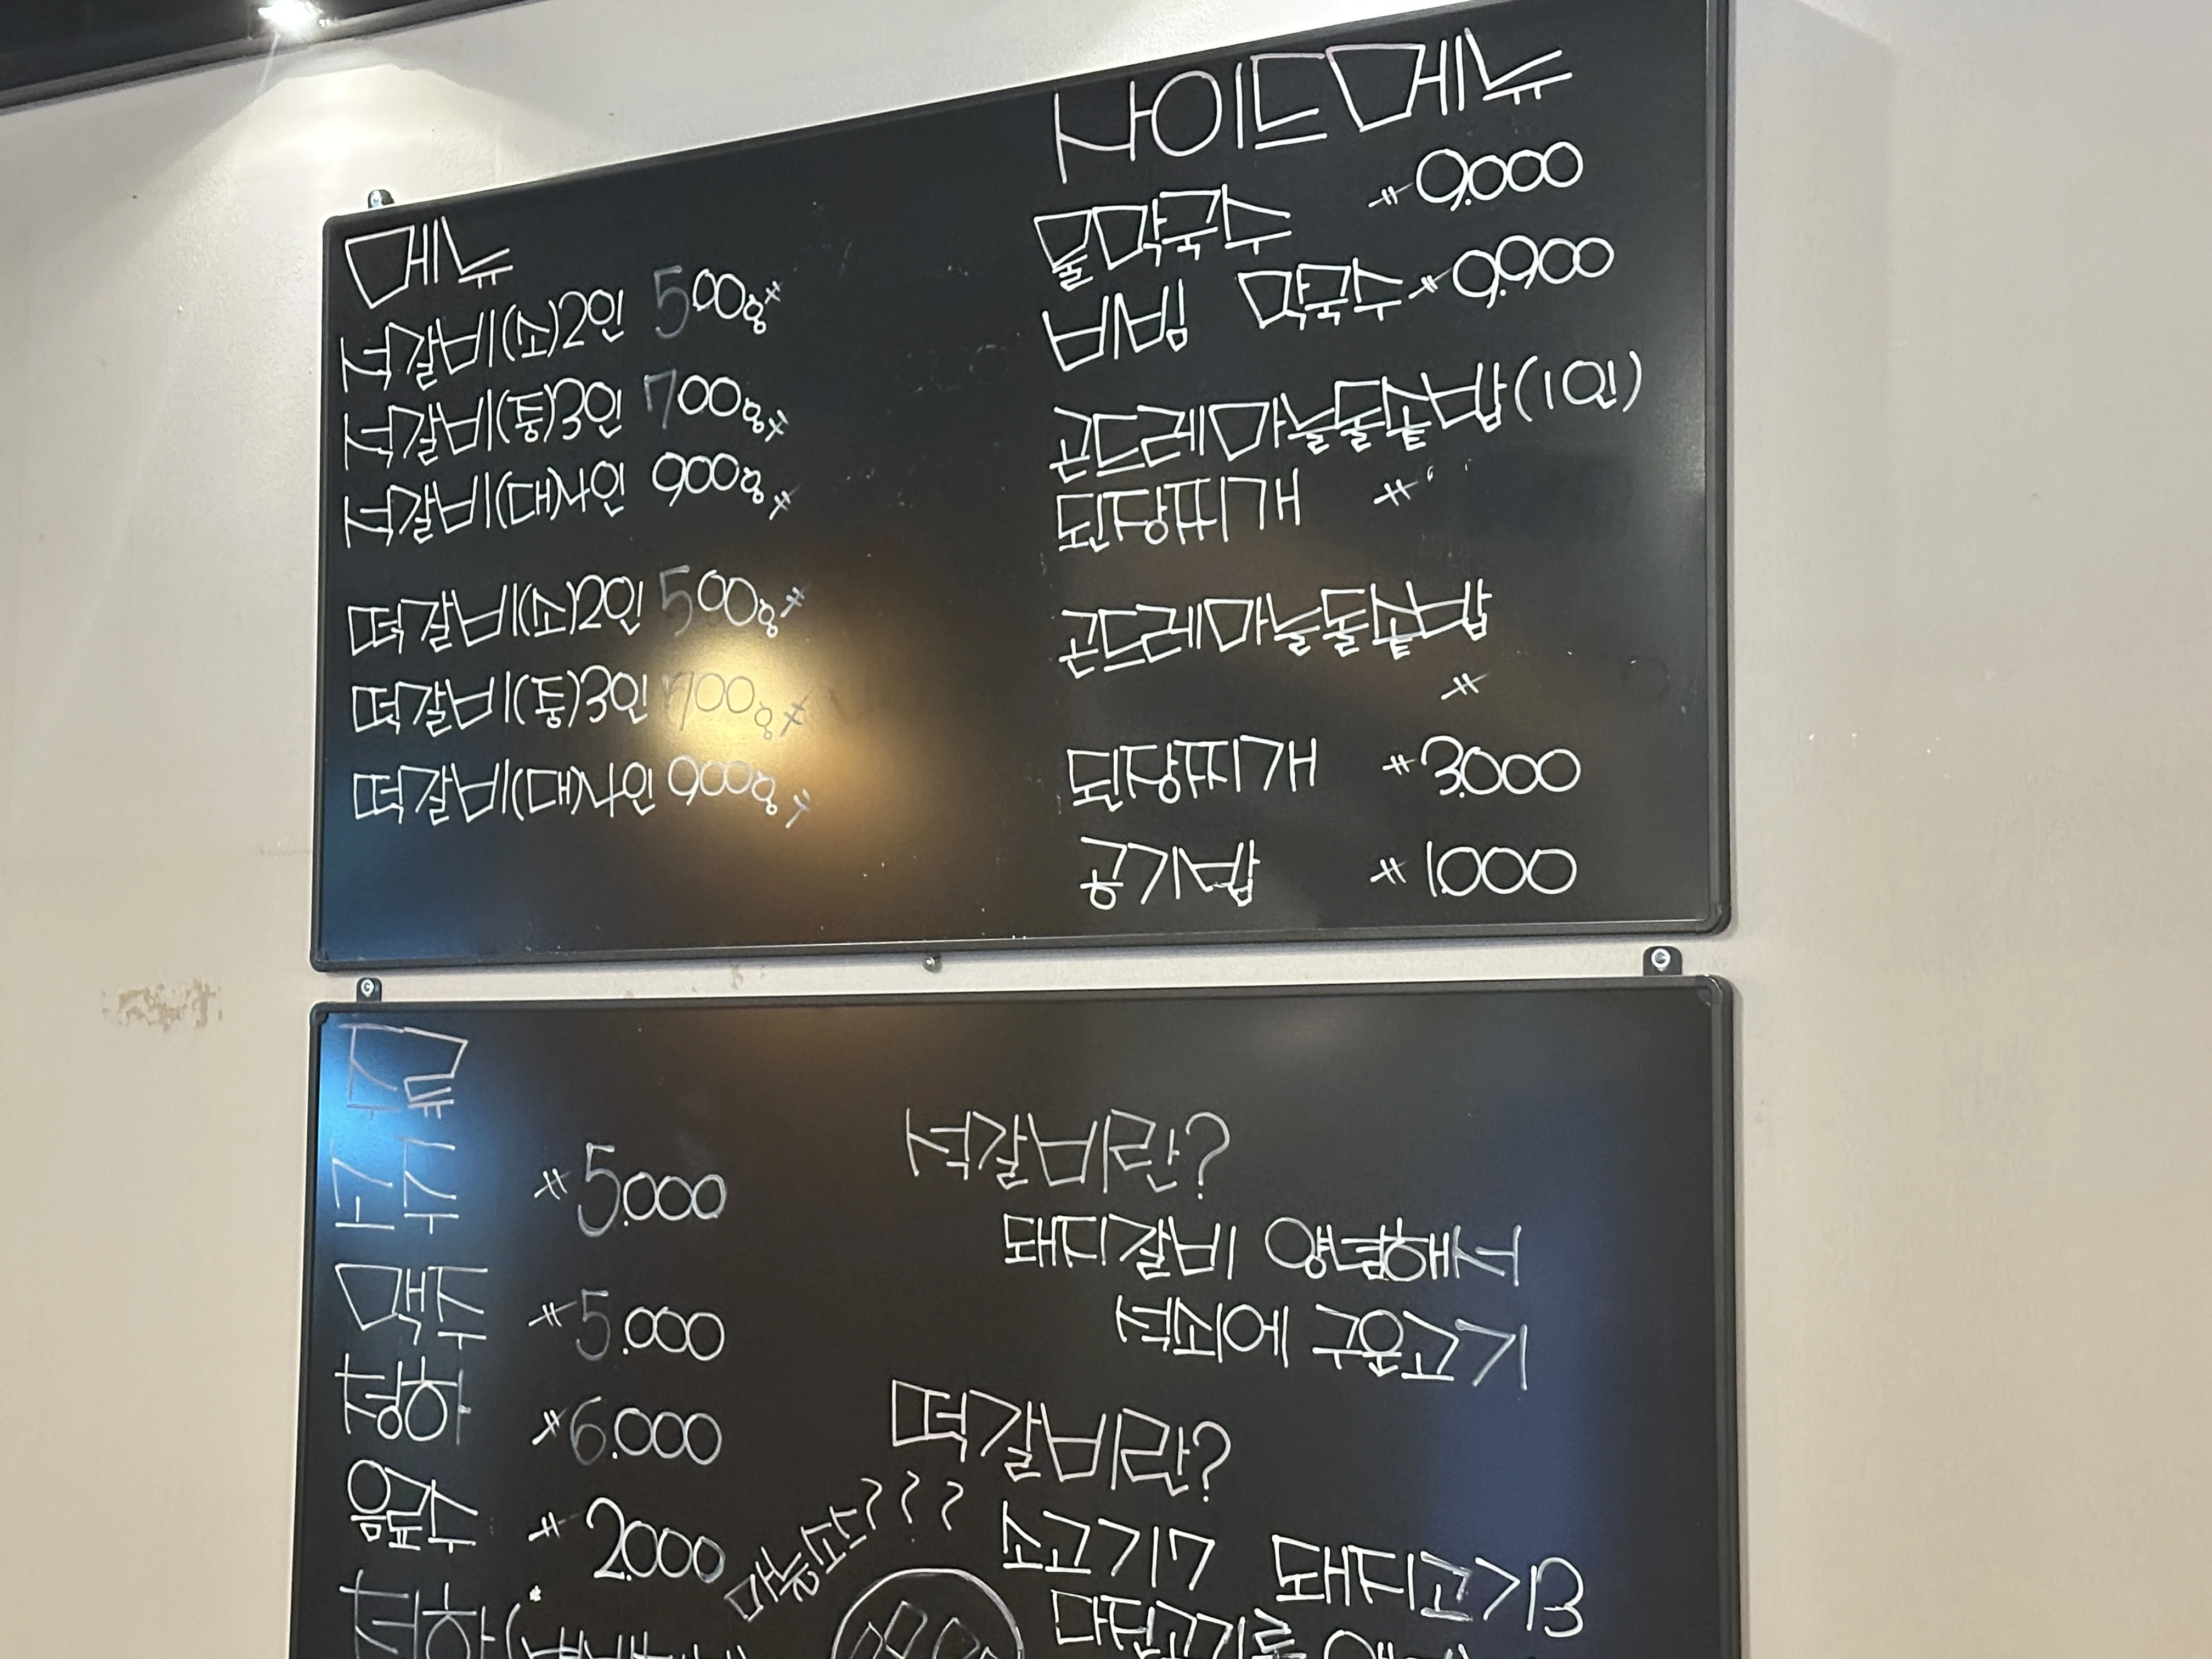 메뉴
석갈비(소)2인 500g ₩
석갈비(중)3인 700g ₩
석갈비(대)4인 900g ₩
떡갈비(소)2인 500g ₩
떡갈비(중)3인 700g ₩
떡갈비(대)4인 900g ₩
사이드메뉴
물막국수 ₩9,000
비빔 막국수 ₩9,900
곤드레마늘돌솥밥(1인)
된장찌개 ₩
곤드레마늘돌솥밥
₩
된장찌개 ₩3,000
공기밥 ₩1,000
주물
소주 ₩5,000
맥주 ₩5,000
청하 ₩6,000
음료수 ₩2,000
석갈비란?
돼지갈비 양념해서
석쇠에 구운고기
떡갈비란?
소고기7 돼지고기3
다진고기를